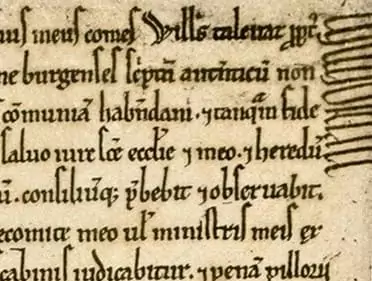 nus meus comes Willꝰs taleuat ppt̄
ne burgenses sc̄ptū autēticū non
cōmuniā habn̄dam . ⁊ tanq̄m fide
saluo iure sc̄e ecclīe ⁊ meo . ⁊ heredū
ū . consiliūq; p̄bebit ⁊ obseruabit .
ecomite meo ul̄ ministris meis ex
cabinis iudicabitur . ⁊ penā pillorij